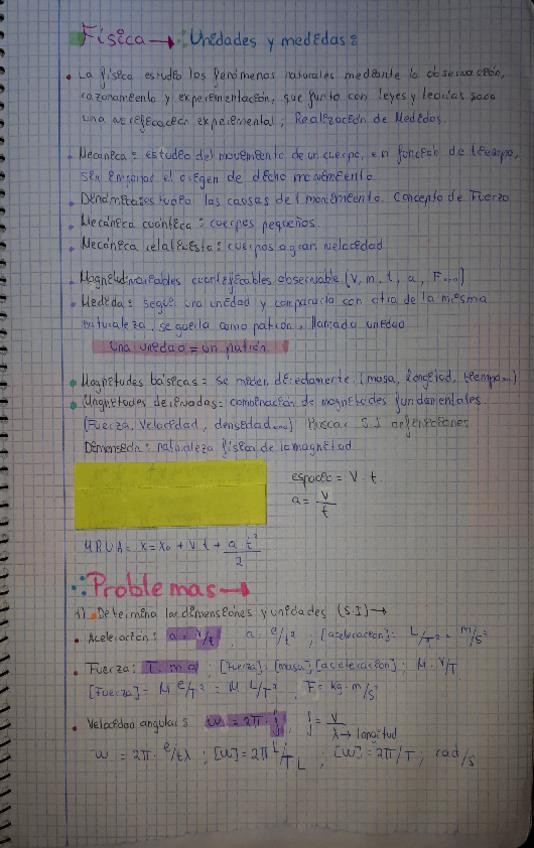 Física → Unidades y medidas:
• La física estudia los fenómenos naturales mediante la observación,
razonamiento y experimentación, que junto con leyes y teorías saca
una verificación experimental; Realización de Medidas.
• Mecánica: estudio del movimiento de un cuerpo, en función de tiempo,
sin el origen de dicho movimiento.
• las causas del movimiento. Concepto de Fuerza
• Mecánica cuántica: cuerpos pequeños.
• Mecánica relativista: cuerpos a gran velocidad
• Magnitud: variables cuantificables observable (V, m, t, a, F...)
• Medida: una unidad y compararla con otra de la misma
naturaleza, como patrón, llamado unidad
Una unidad = un patrón
• Magnitudes básicas: se miden directamente. (masa, longitud, tiempo...)
• Magnitudes derivadas: combinación de magnitudes fundamentales.
(Fuerza, Velocidad, densidad...) Buscar S.I definiciones
Dimensión: naturaleza física de la magnitud
espacio = V · t
a = V/t
MRUA = x = x₀ + v t + a t²/2
Problemas →
1) Determina las dimensiones y unidades (S.I) →
• Aceleración: a = V/t, a = e/t² ; [aceleracion] = L/T² = m/s²
• Fuerza: F = m·a ; [Fuerza] = [masa][aceleracion] ; M · V/T
[Fuerza] = M e/T² = M L/T² , F = kg·m/s²
• Velocidad angular: ω = 2π · f , f = V/λ → longitud
ω = 2π · e/tλ ; [ω] = 2π L/T L ; [ω] = 2π/T ; rad/s